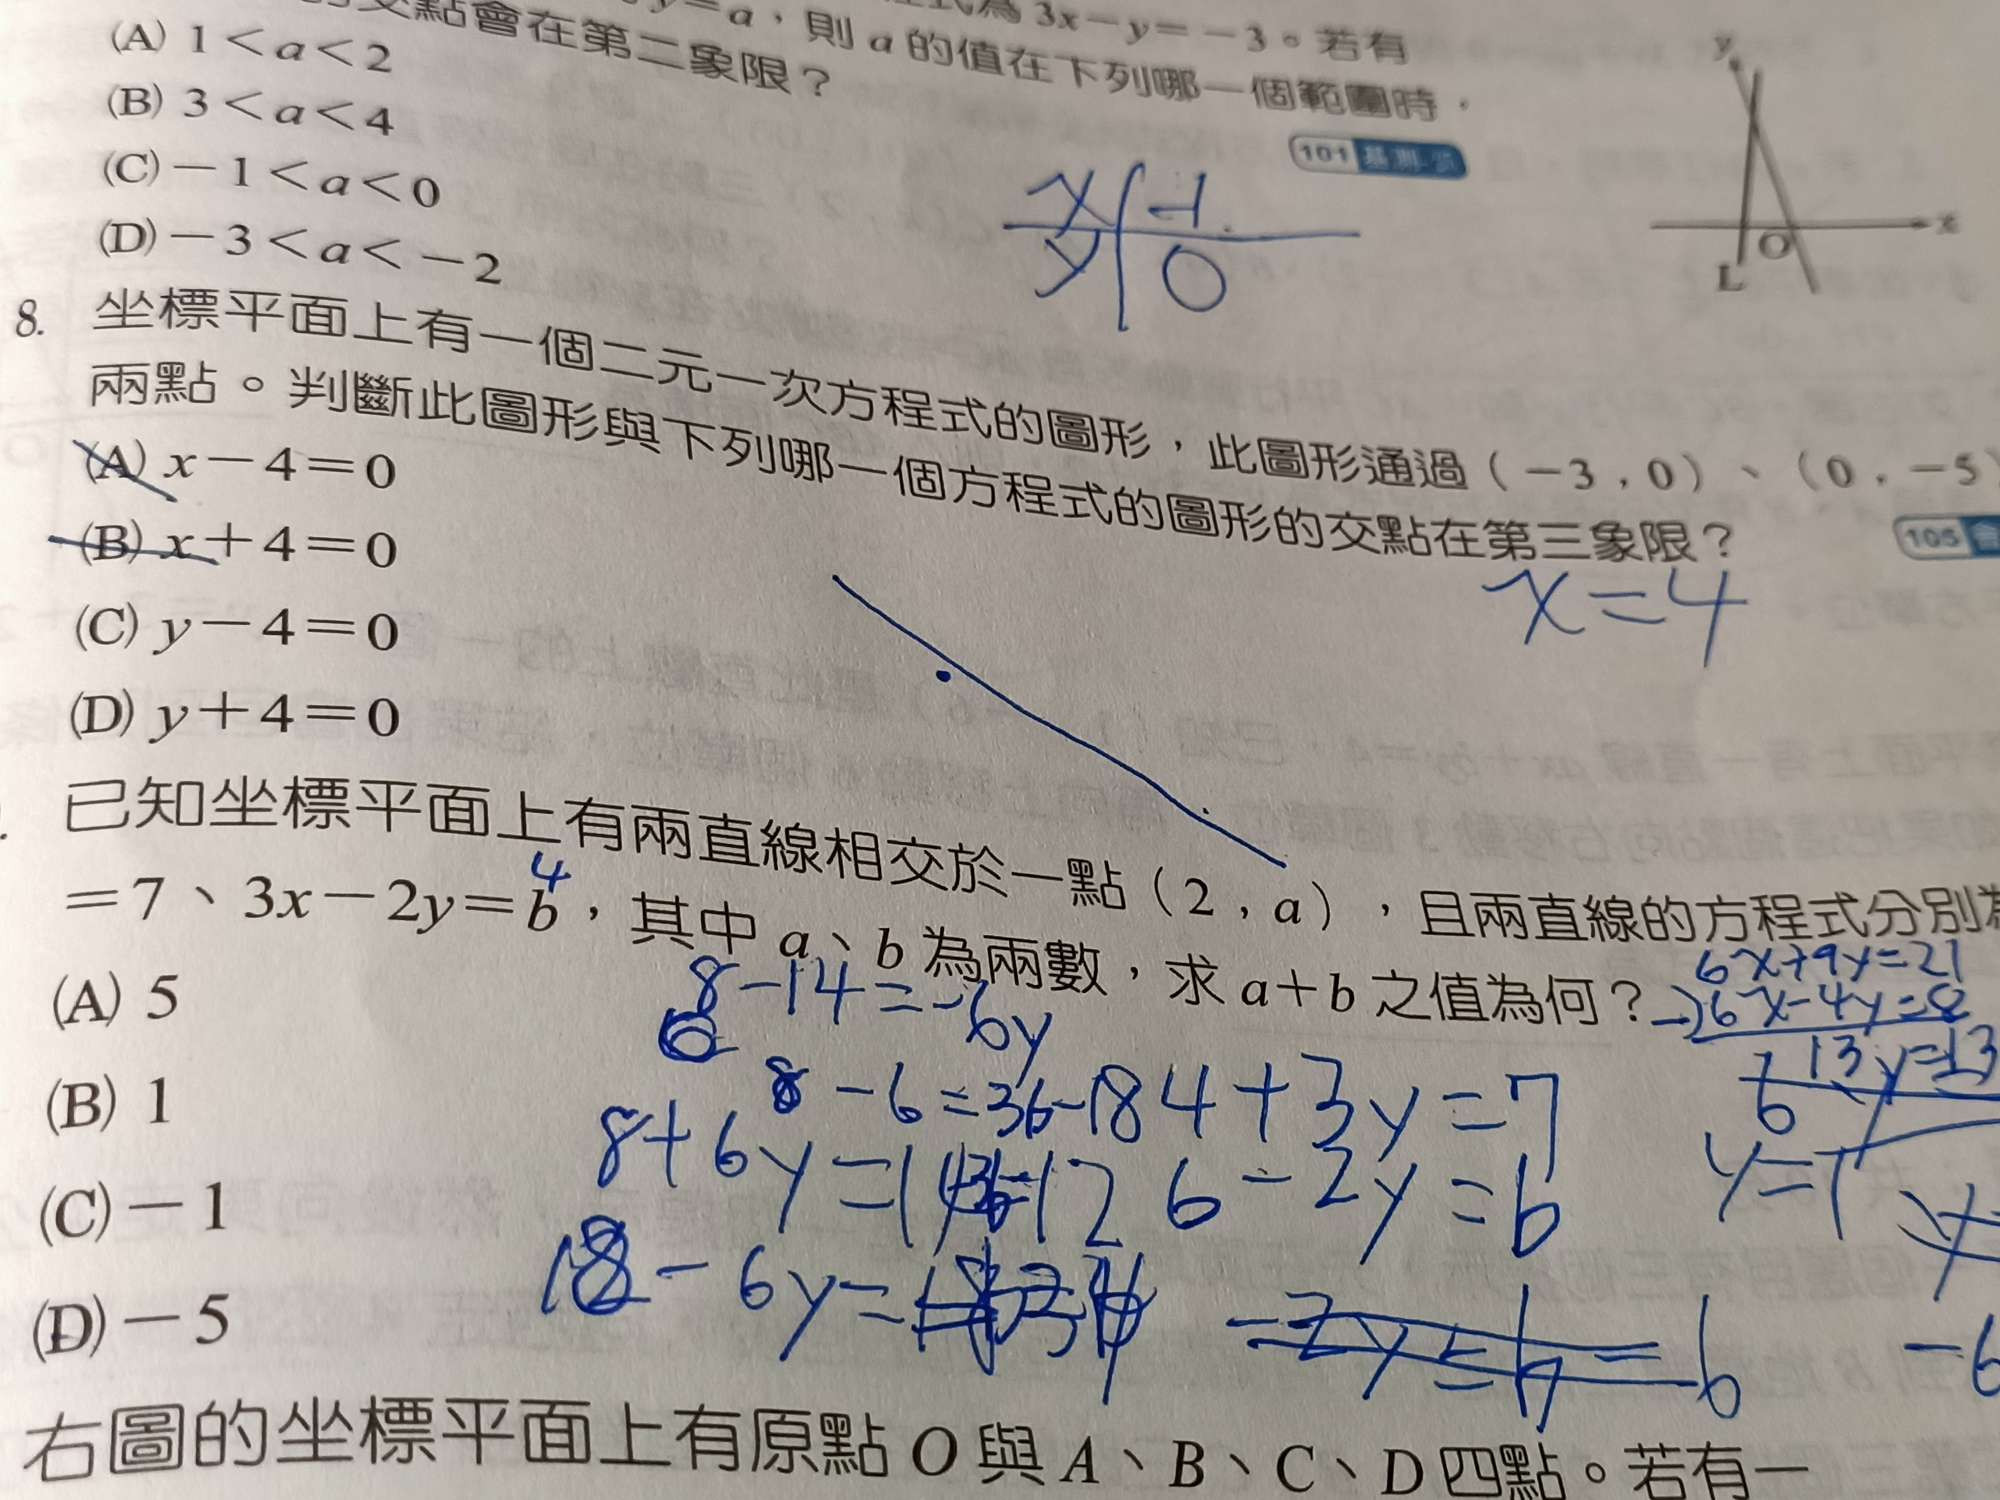 y=a，則 a 的值在下列哪一個範圍時，
為 3x－y＝－3。若有
交點會在第二象限？
101 基測
(A) 1＜a＜2
(B) 3＜a＜4
(C)－1＜a＜0
(D)－3＜a＜－2
y
x
O
L
x －1
y 0
8. 坐標平面上有一個二元一次方程式的圖形，此圖形通過（－3，0）、（0，－5）
兩點。判斷此圖形與下列哪一個方程式的圖形的交點在第三象限？
105 會
(A) x－4＝0
(B) x＋4＝0
(C) y－4＝0
(D) y＋4＝0
x=4
已知坐標平面上有兩直線相交於一點（2，a），且兩直線的方程式分別為
＝7、3x－2y＝b，其中 a、b 為兩數，求 a＋b 之值為何？
4
(A) 5
(B) 1
(C)－1
(D)－5
6x+9y=21
6x-4y=8
13y=13
y=1
8-14=-6y
8-6=36-18
4+3y=7
8+6y=14
6-2y=b
18-6y=
-2y=b-6
右圖的坐標平面上有原點 O 與 A、B、C、D 四點。若有一